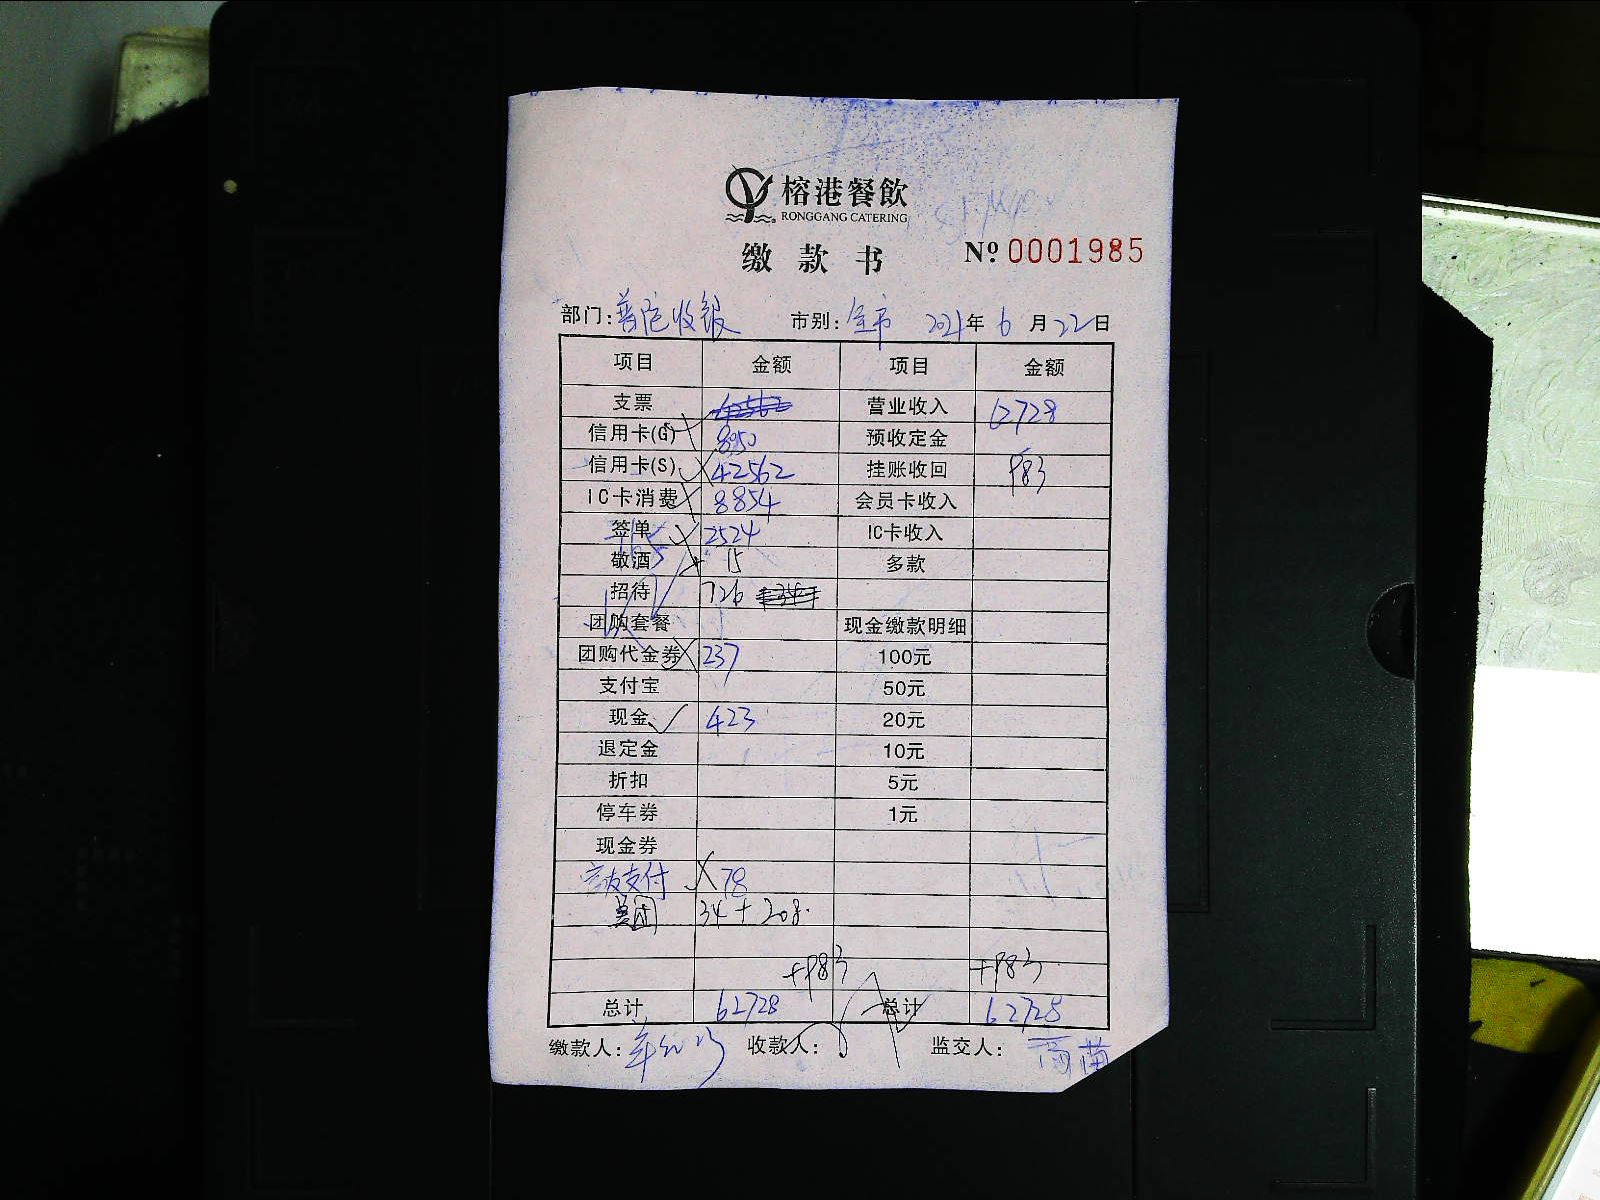 榕港餐飲
RONGGANG CATERING
缴款书 №0001985
部门:普陀收银 市别:全市 2021年6月22日
项目 金额 项目 金额
支票 营业收入 62728
信用卡(G) 8950 预收定金
信用卡(S) 42562 挂账收回 983
IC卡消费 8854 会员卡收入
签单 2524 IC卡收入
敬酒 15 多款
招待 726
团购套餐 现金缴款明细
团购代金券 237 100元
支付宝 50元
现金 423 20元
退定金 10元
折扣 5元
停车券 1元
现金券
支付 78
美团 34+208.
+983 +983
总计 62728 总计 62728
缴款人: 收款人: 监交人: